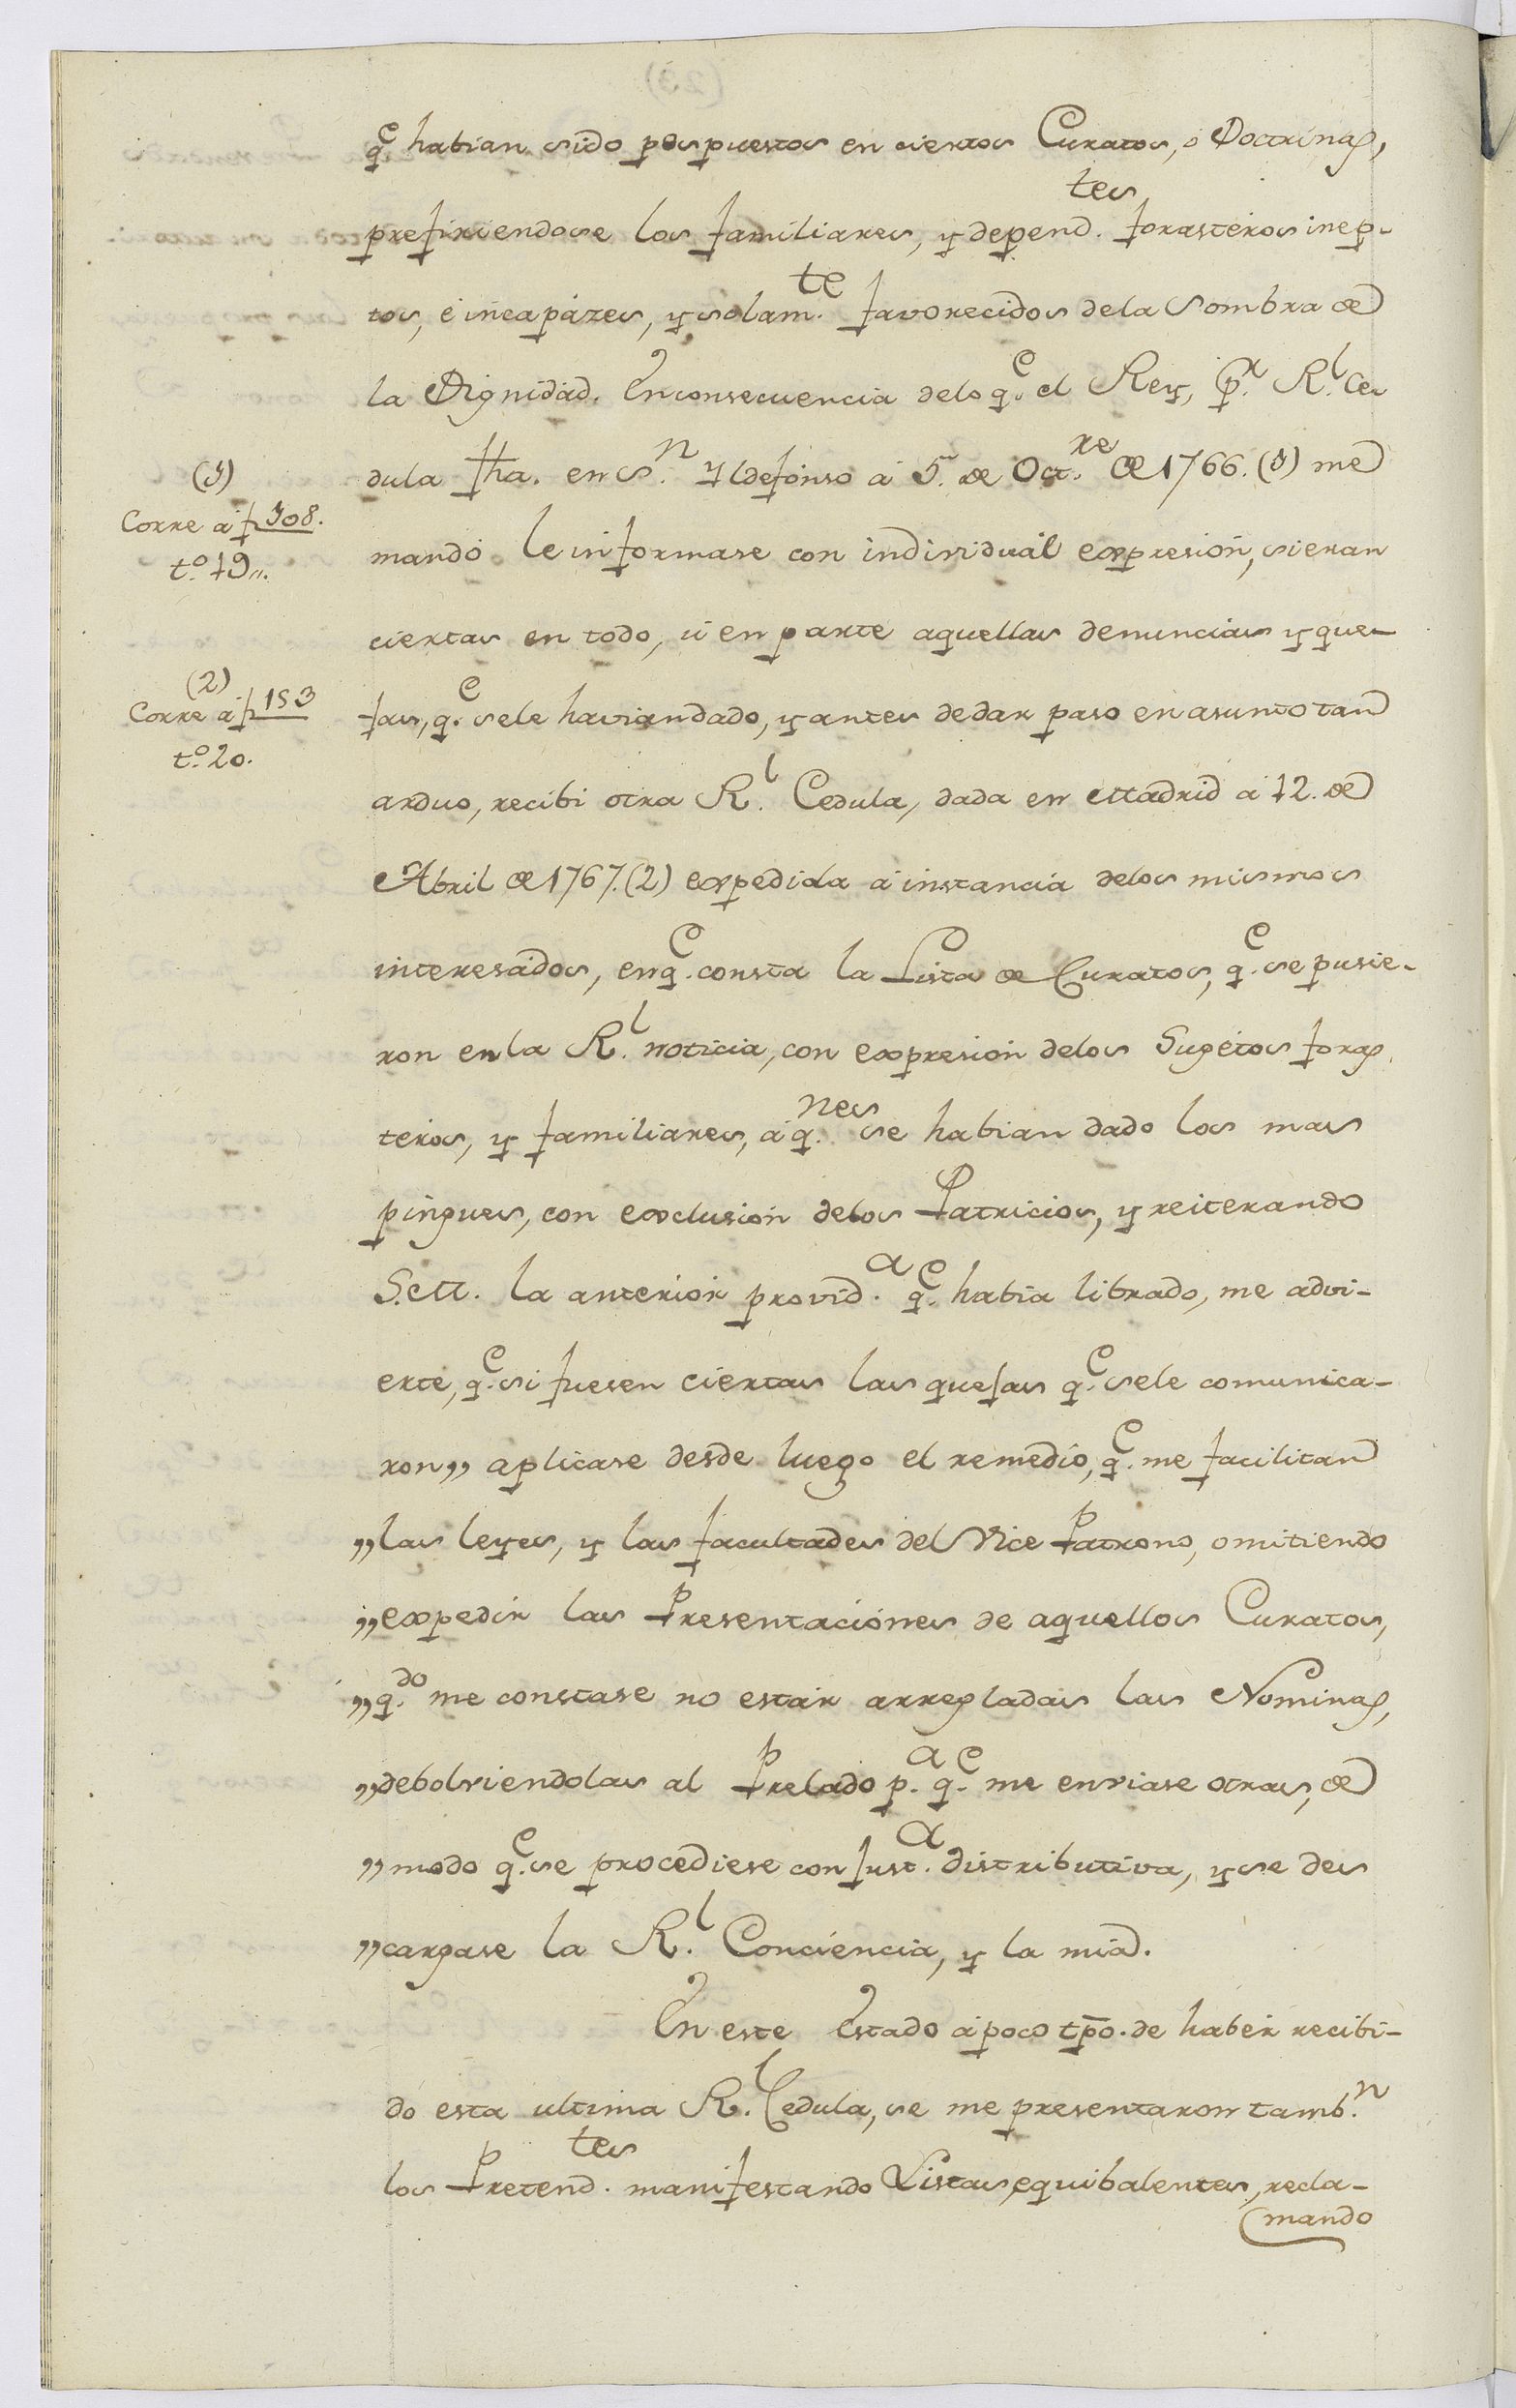 q.e habian sido pospuestos en ciertos Curatos, o Doctrinas,
prefiriendose los familiares, y depend.tes forasteros inep-
tos, é incapázes, y solam.te favorecidos dela Sombra de
la Dignidad. En consecuencia delo q.e el Rey, p.r R.l Ce
dula fha. en S.n Yldefonso á 5. de Oct.re de 1766. (1) me
(1)
Corre á f 108.
t.o 19,,.
mandó le informase con individuál expresión, si eran
ciertas en todo, ú en parte aquellas denuncias y que-
jas, q.e sele haviandado, y antes dedar paso en asunto tan
(2)
Corre á f 153
t.o 20.
arduo, recibi otra R.l Cedula, dada en Madrid á 12. de
Abril de 1767. (2) expedida á instancia delos mismos
interesados, enq.e consta la Lista de Curatos, q.e se pusie-
ron enla R.l noticia, con expresion delos Sugetos foras
teros, y familiares, á q.nes se habian dado los mas
pingues, con exclusión delos Patricios, y reiterando
S.M. la anterior provid.a q.e habia librado, me advi-
erte, q.e si fuesen ciertas las quejas q.e sele comunica-
ron,, aplicase desde luego el remedio, q.e me facilitan
,,las leyes, y las facultades del Vice Patrono, omitiendo
,,expedir las Presentaciónes de aquellos Curatos,
,,q.do me constase no estár arregladas las Nominas,
,,debolviendolas al Prelado p.a q.e me enviase otras, de
,,modo q.e se procediese con just.a distributiva, y se des
,,cargase la R.l Conciencia, y la mia.
En este Estado á poco tpo. de habér recibi-
do esta ultima R.l Cedula, se me presentaron tamb.n
los Pretend.tes manifestando Listas equibalentes, recla-
mando